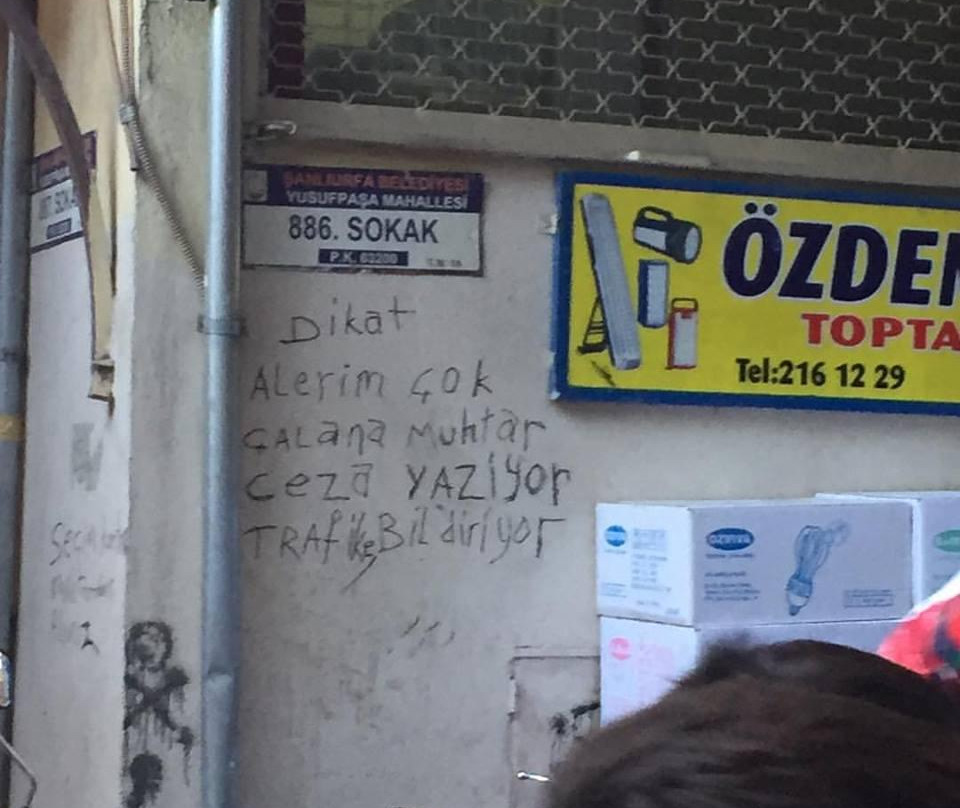 ŞANLIURFA BELEDİYESİ
YUSUFPAŞA MAHALLESİ
886. SOKAK
P.K. 63200
Dikat
ALerim çok
ÇALana Muhtar
ceza YAZIyor
TRAfike Bildiriyor
ÖZDEM
TOPTA
Tel:216 12 29